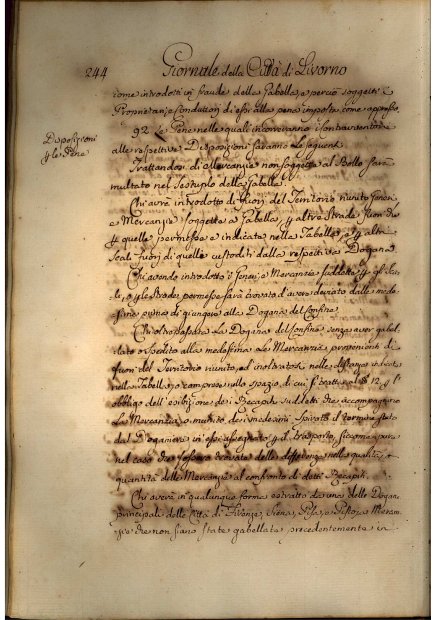 244
Giornale della Città di Livorno
come introdotti in fraude della Gabella, e perciò soggetti i
Proprietarj e Conduttori di essi alla pena imposta come appresso.
Disposizioni
p le Pene
92. Le Pene nelle quali incorreranno i Contravventori
alle respettive Disposizioni saranno le seguenti
Trattandosi di Mercanzie non soggette al Bollo sarà
multato nel Sestuplo della Gabella.
Chi avrà introdotto di fuori del Territorio riunito generi
e Mercanzie soggette a Gabella, p altre Strade fuori che
p quelle permesse e indicate nella Tabella, o p altri
Scali fuori di quelle custodite dalle respettive Dogane
Chi avendo introdotto i Generi, e Mercanzie suddette p gli Sca-
li, o p le Strade permesse sarà trovato d'avere deviato dalle mede-
sime prima di giungere alla Dogana del Confine
Chi oltrepasserà la Dogana del Confine senza aver gabel-
lato o spedito alla medesima le Mercanzie provenienti di
fuori del Territorio riunito, ed inoltratosi nelle distanze indicate
nella Tabella, o compreso nello spazio, di cui si tratta al § 12. p l'
obbligo dell'esibizione dei Recapiti suddetti che accompagnino
la Mercanzia, o munito dei medesimi spirato il termine stato
dal Doganiere in essi assegnato p il trasporto, siccome pure
nel caso che fossero trovate delle differenze nella qualità, e
quantità delle Mercanzie al confronto di detti Recapiti.
Chi averà in qualunque forma estratto da una delle Dogane
principali delle Città di Firenze, Siena, Pisa, e Pistoja Mercan-
zie che non siano state gabellate precedentemente in